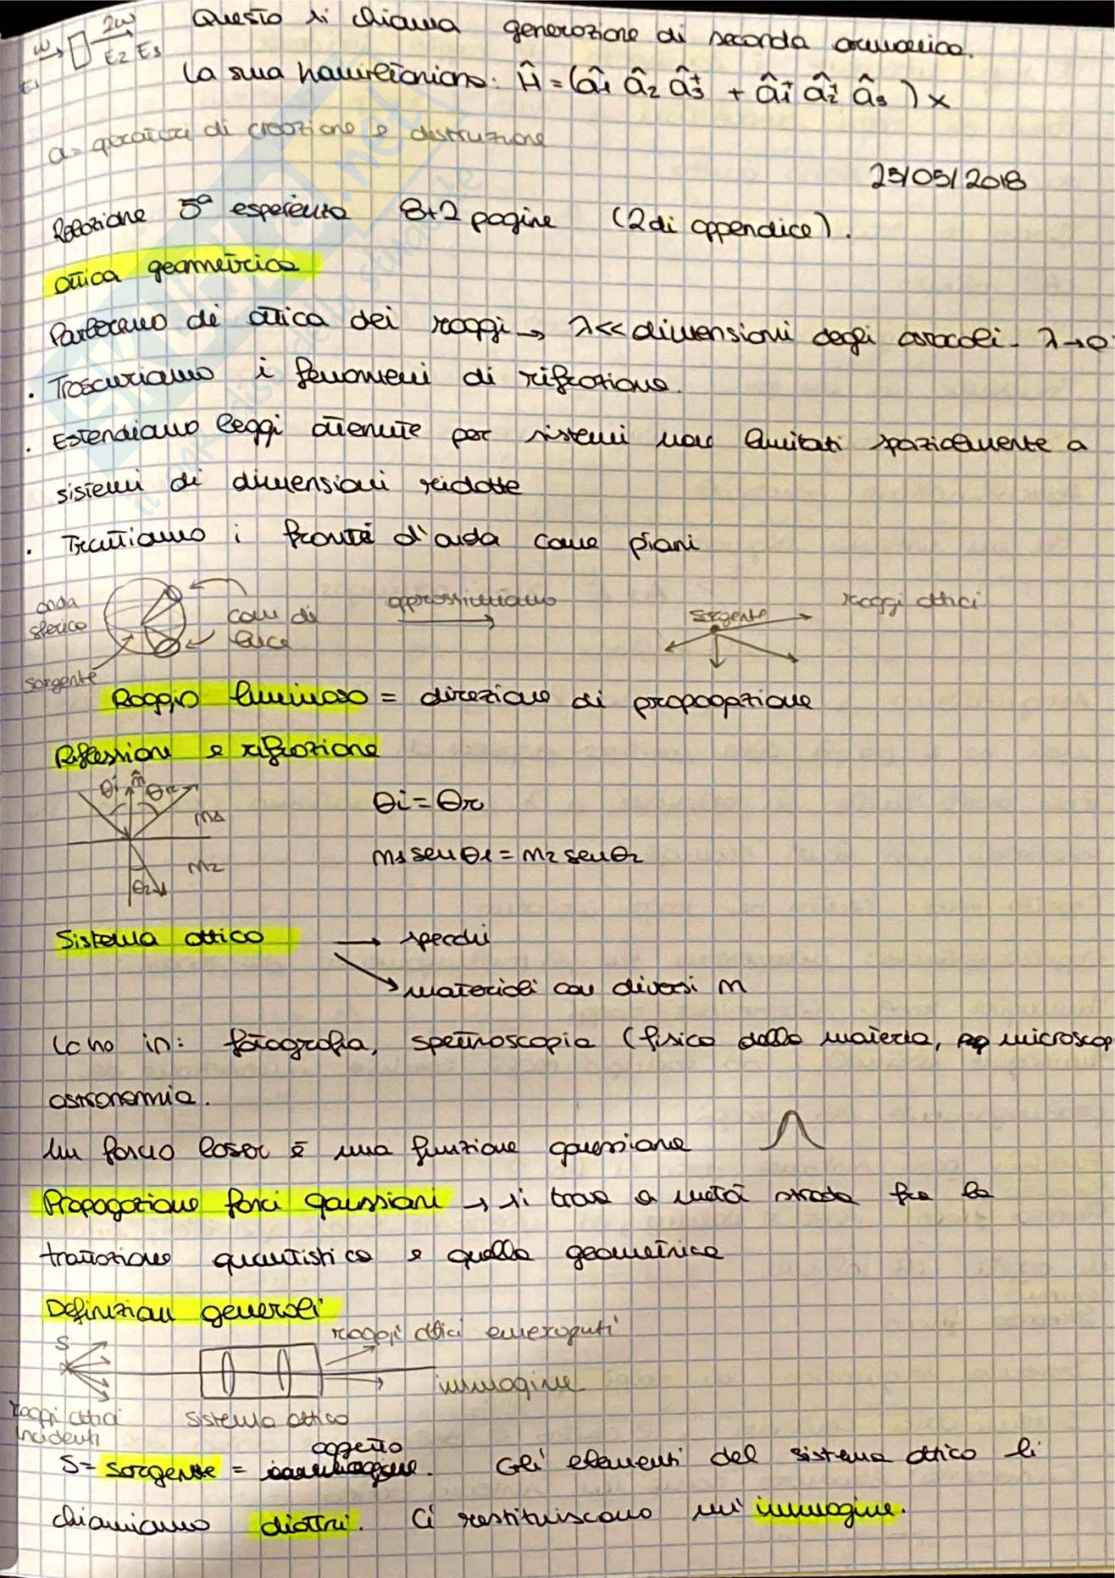 ω 2ω Questo si chiama generazione di seconda armonica.
E1 E2 E3
La sua hamiltoniana: Ĥ = (â1 â2 â3† + â1† â2† â3) x
a = operatori di creazione e distruzione
25/05/2018
Relazione 5ª esperienza 8+2 pagine (2 di appendice).
Ottica geometrica
Parleremo di ottica dei raggi → λ << dimensioni degli ostacoli - λ→0
· Trascuriamo i fenomeni di rifrazione.
· Estendiamo leggi ottenute per sistemi non limitati spazialmente a
sistemi di dimensioni ridotte
· Trattiamo i fronti d'onda come piani
onda sferica
sorgente
coni di luce
approssimiamo
sorgente
raggi ottici
Raggio luminoso = direzione di propagazione
Riflessione e rifrazione
θi n̂ θr
n1
n2
θ2
θi = θr
n1 sen θ1 = n2 sen θ2
Sistema ottico → specchi
→ materiali con diversi n
Lo ho in: fotografia, spettroscopia (fisica della materia, microscop
astronomia.
Un fascio laser è una funzione gaussiana
Propagazione fasci gaussiani → si trova a metà strada fra la
trattazione quantistica e quella geometrica
Definizioni generali
S
raggi ottici emergenti
immagine
raggi ottici incidenti
sistema ottico
oggetto
S = sorgente = immagine. Gli elementi del sistema ottico li
chiamiamo diottri. Ci restituiscono un'immagine.